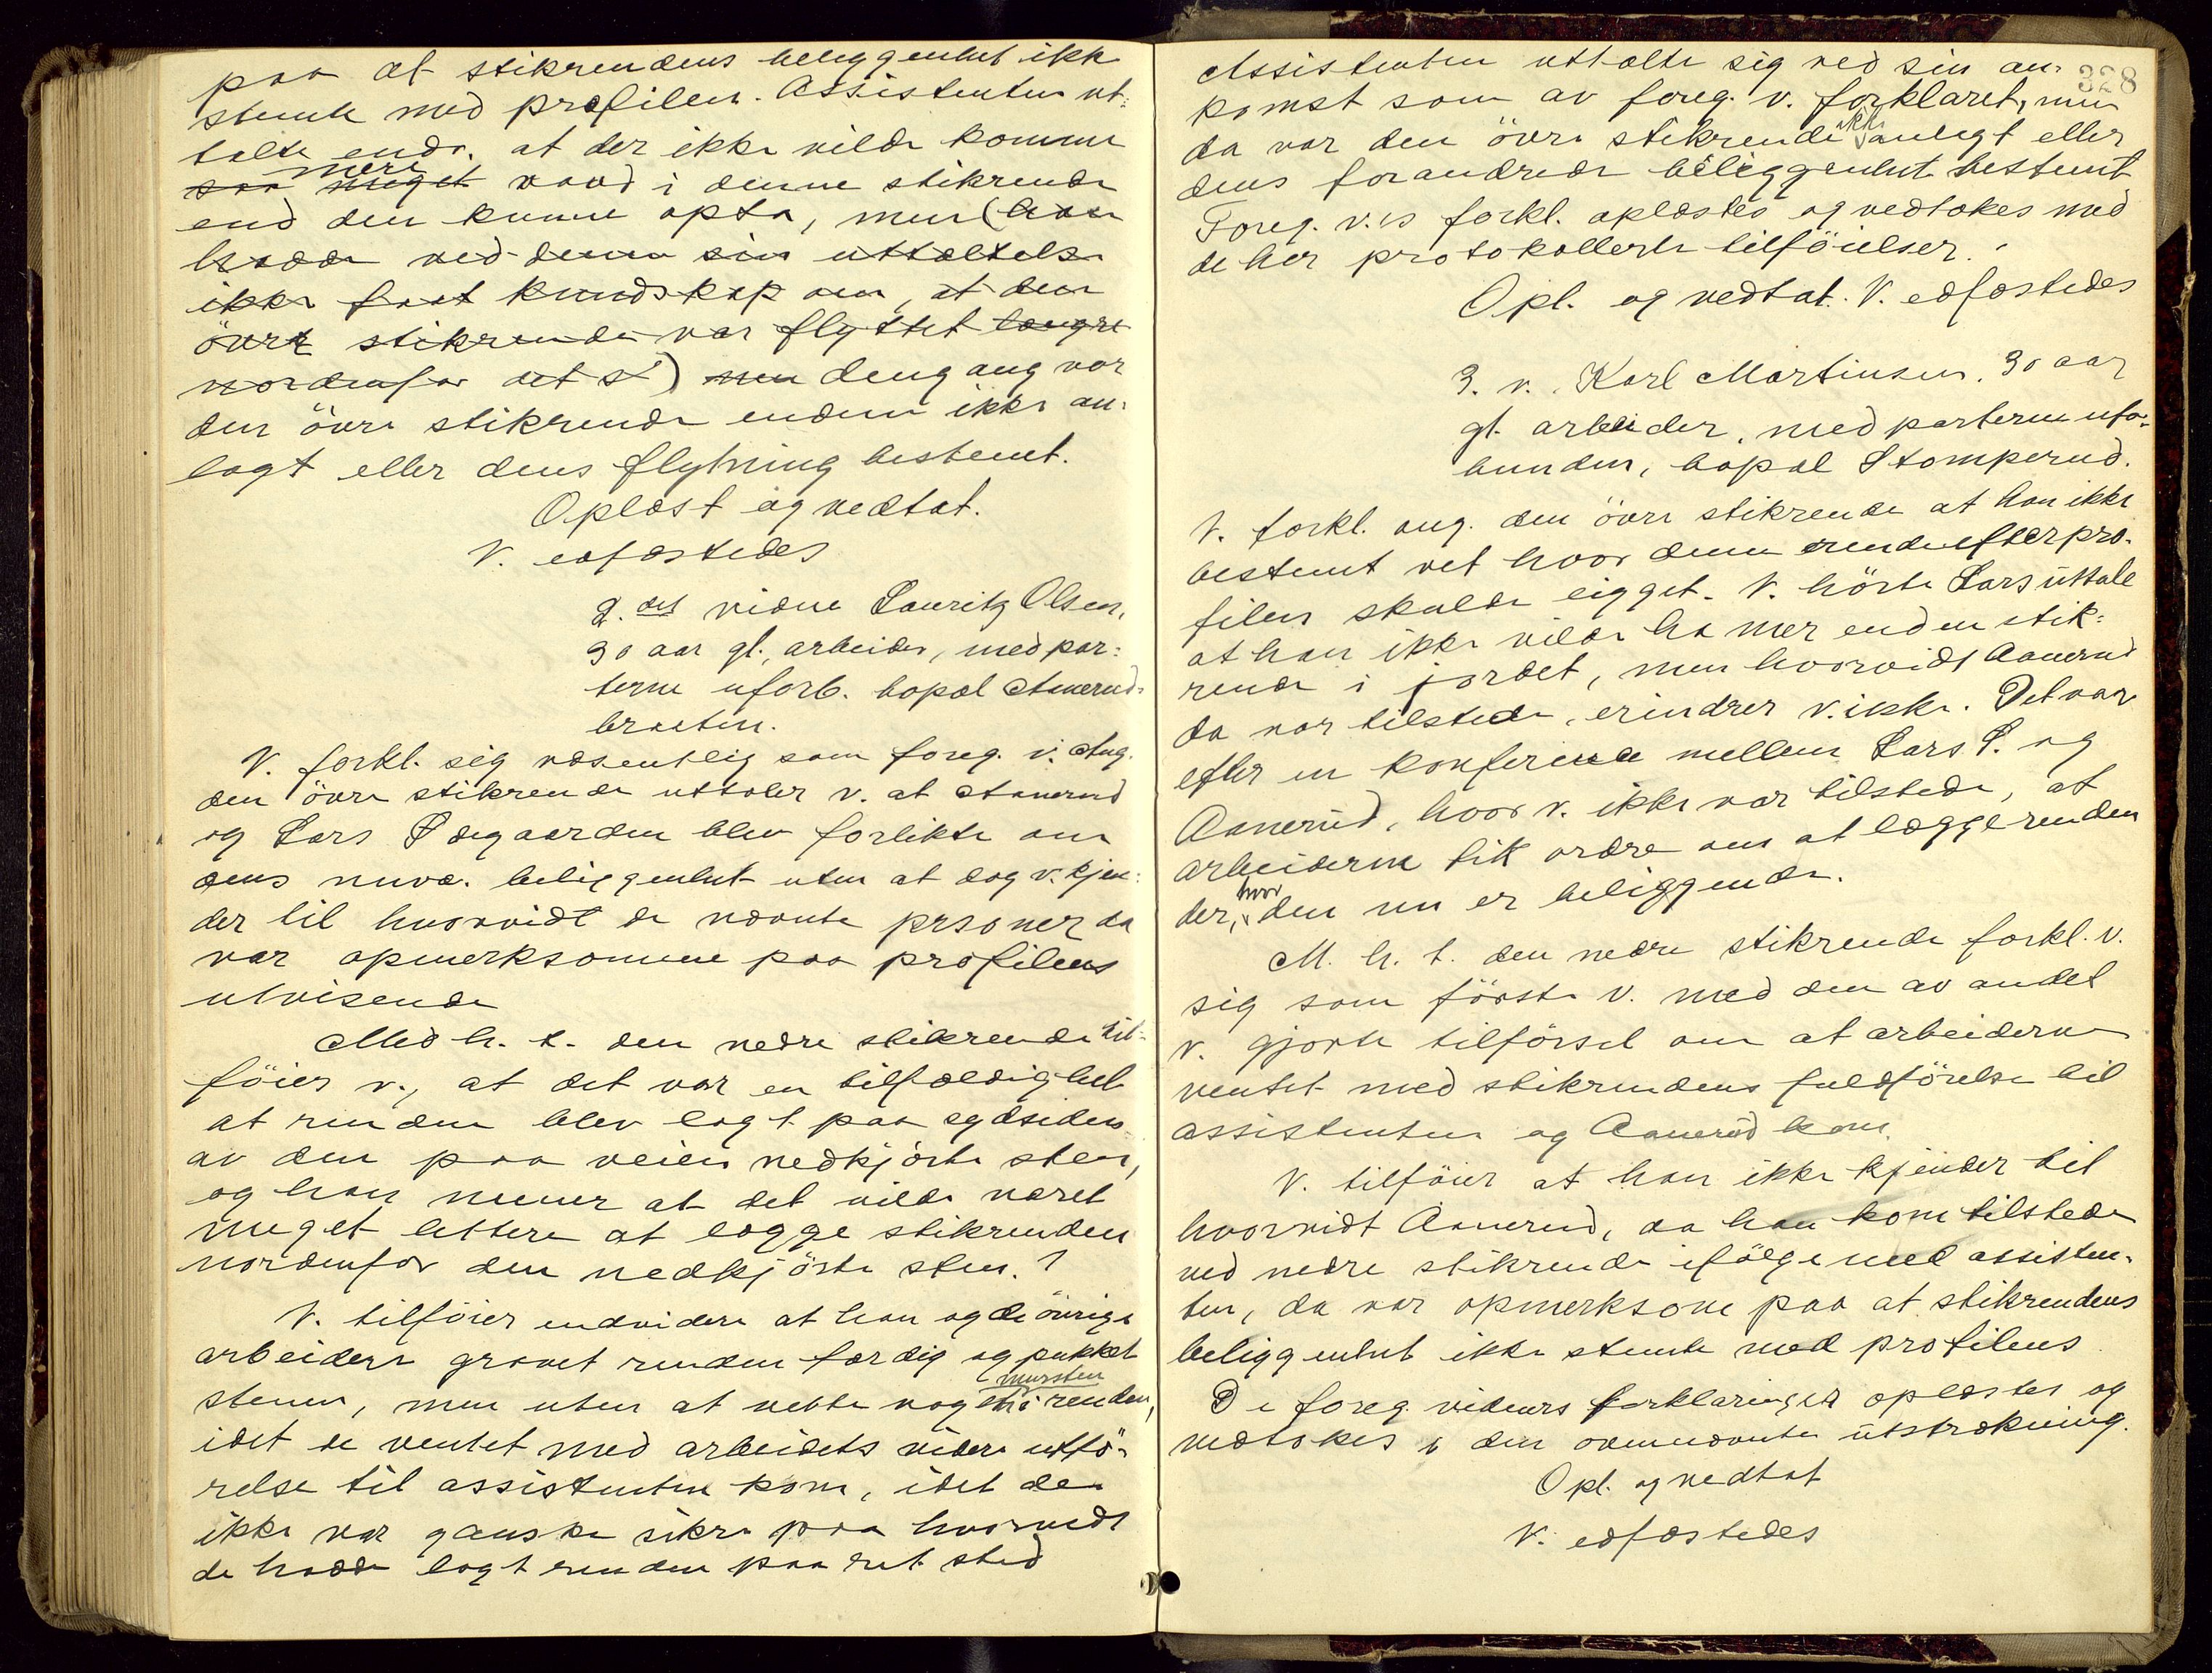 paa at stikrendens beliggenhet ikke
stemte med profilen. Assistenten ut-
talte ends. at der ikke vilde komme
saa meget mere vand i denne stikrende
end den kunne opta, men (han
hadde ved denne sin uttalelse
ikke faat kundskap om, at den
övre stikrende var flyttet længre
nordenfor det s) men dengang var
den övre stikrende endnu ikke an-
lagt eller dens flytning bestemt.
Oplæst og vedtat.
V. edfæstedes
2. det vidne Lauritz Olsen,
30 aar gl., arbeider, med par-
terne uforb. bopæl Aanerud-
braaten.
V. forkl. sig væsentlig som foreg. v. Ang.
den övre stikrende uttaler v. at Aanerud
og Lars Ødegaarden blev forlikte om
dens nuvæ. beliggenhet uten at dog v. kjen-
der til hvorvidt de nævnte prsoner da
var opmerksomme paa profilens
utvisende
Med h. t. den nedre stikrende til-
föier v., at det var en tilfældighet
at renden blev lagt paa sydsiden
av den paa veien nedkjörte sten,
og han mener at det vilde været
meget lettere at lægge stikrenden
nordenfor den nedkjörte sten. 1
V. tilföier endvidere at han og de övrige
arbeidere gravet renden færdig og pukket
stenen, men uten at sætte noget mursten i renden,
idet de ventet med arbeidets videre utfö-
relse til assistenten kom, idet de
ikke var ganske sikre paa hvorvidt
de hadde lagt renden paa ret sted
328
Assistenten uttalte sig ved sin an-
komst som av foreg. v. forklaret, men
da var den övre stikrende ikke anlagt eller
dens forandrede beliggenhet bestemt
Foreg. v.'s forkl. oplæstes og vedtokes med
de her protokollerte tilföielser.
Opl. og vedtat. V. edfæstedes
3. v. Karl Martinsen, 30 aar
gl. arbeider, med parterne ufor-
bunden, bopæl Stomperud.
V. forkl. ang. den övre stikrende at han ikke
bestemt vet hvor denne rende efter pro-
filen skulde ligget. V. hörte Lars uttale
at han ikke vilde ha mer end en stik-
rende i jordet, men hvorvidt Aanerud
da var tilstede, erindrer v. ikke. Det var
efter en konferense mellem Lars Ø. og
Aanerud, hvor v. ikke var tilstede, at
arbeiderne fik ordre om at lægge renden
der, hvor den nu er beliggende.
M. h. t. den nedre stikrende forkl. v.
sig som förste v. med den av andet
v. gjorte tilförsel om at arbeiderne
ventet med stikrendens fuldförelse til
assistenten og Aanerud kom.
V. tilföier at han ikke kjender til
hvorvidt Aanerud, da han kom tilstede
ved nedre stikrende ifölge med assisten-
ten, da var opmerksom paa at stikrendens
beliggenhet ikke stemte med profilens
De foreg. vidners forklaringer oplæstes og
vedtokes i den ovennævnte utstrækning.
Opl. og vedtat
V. edfæstedes